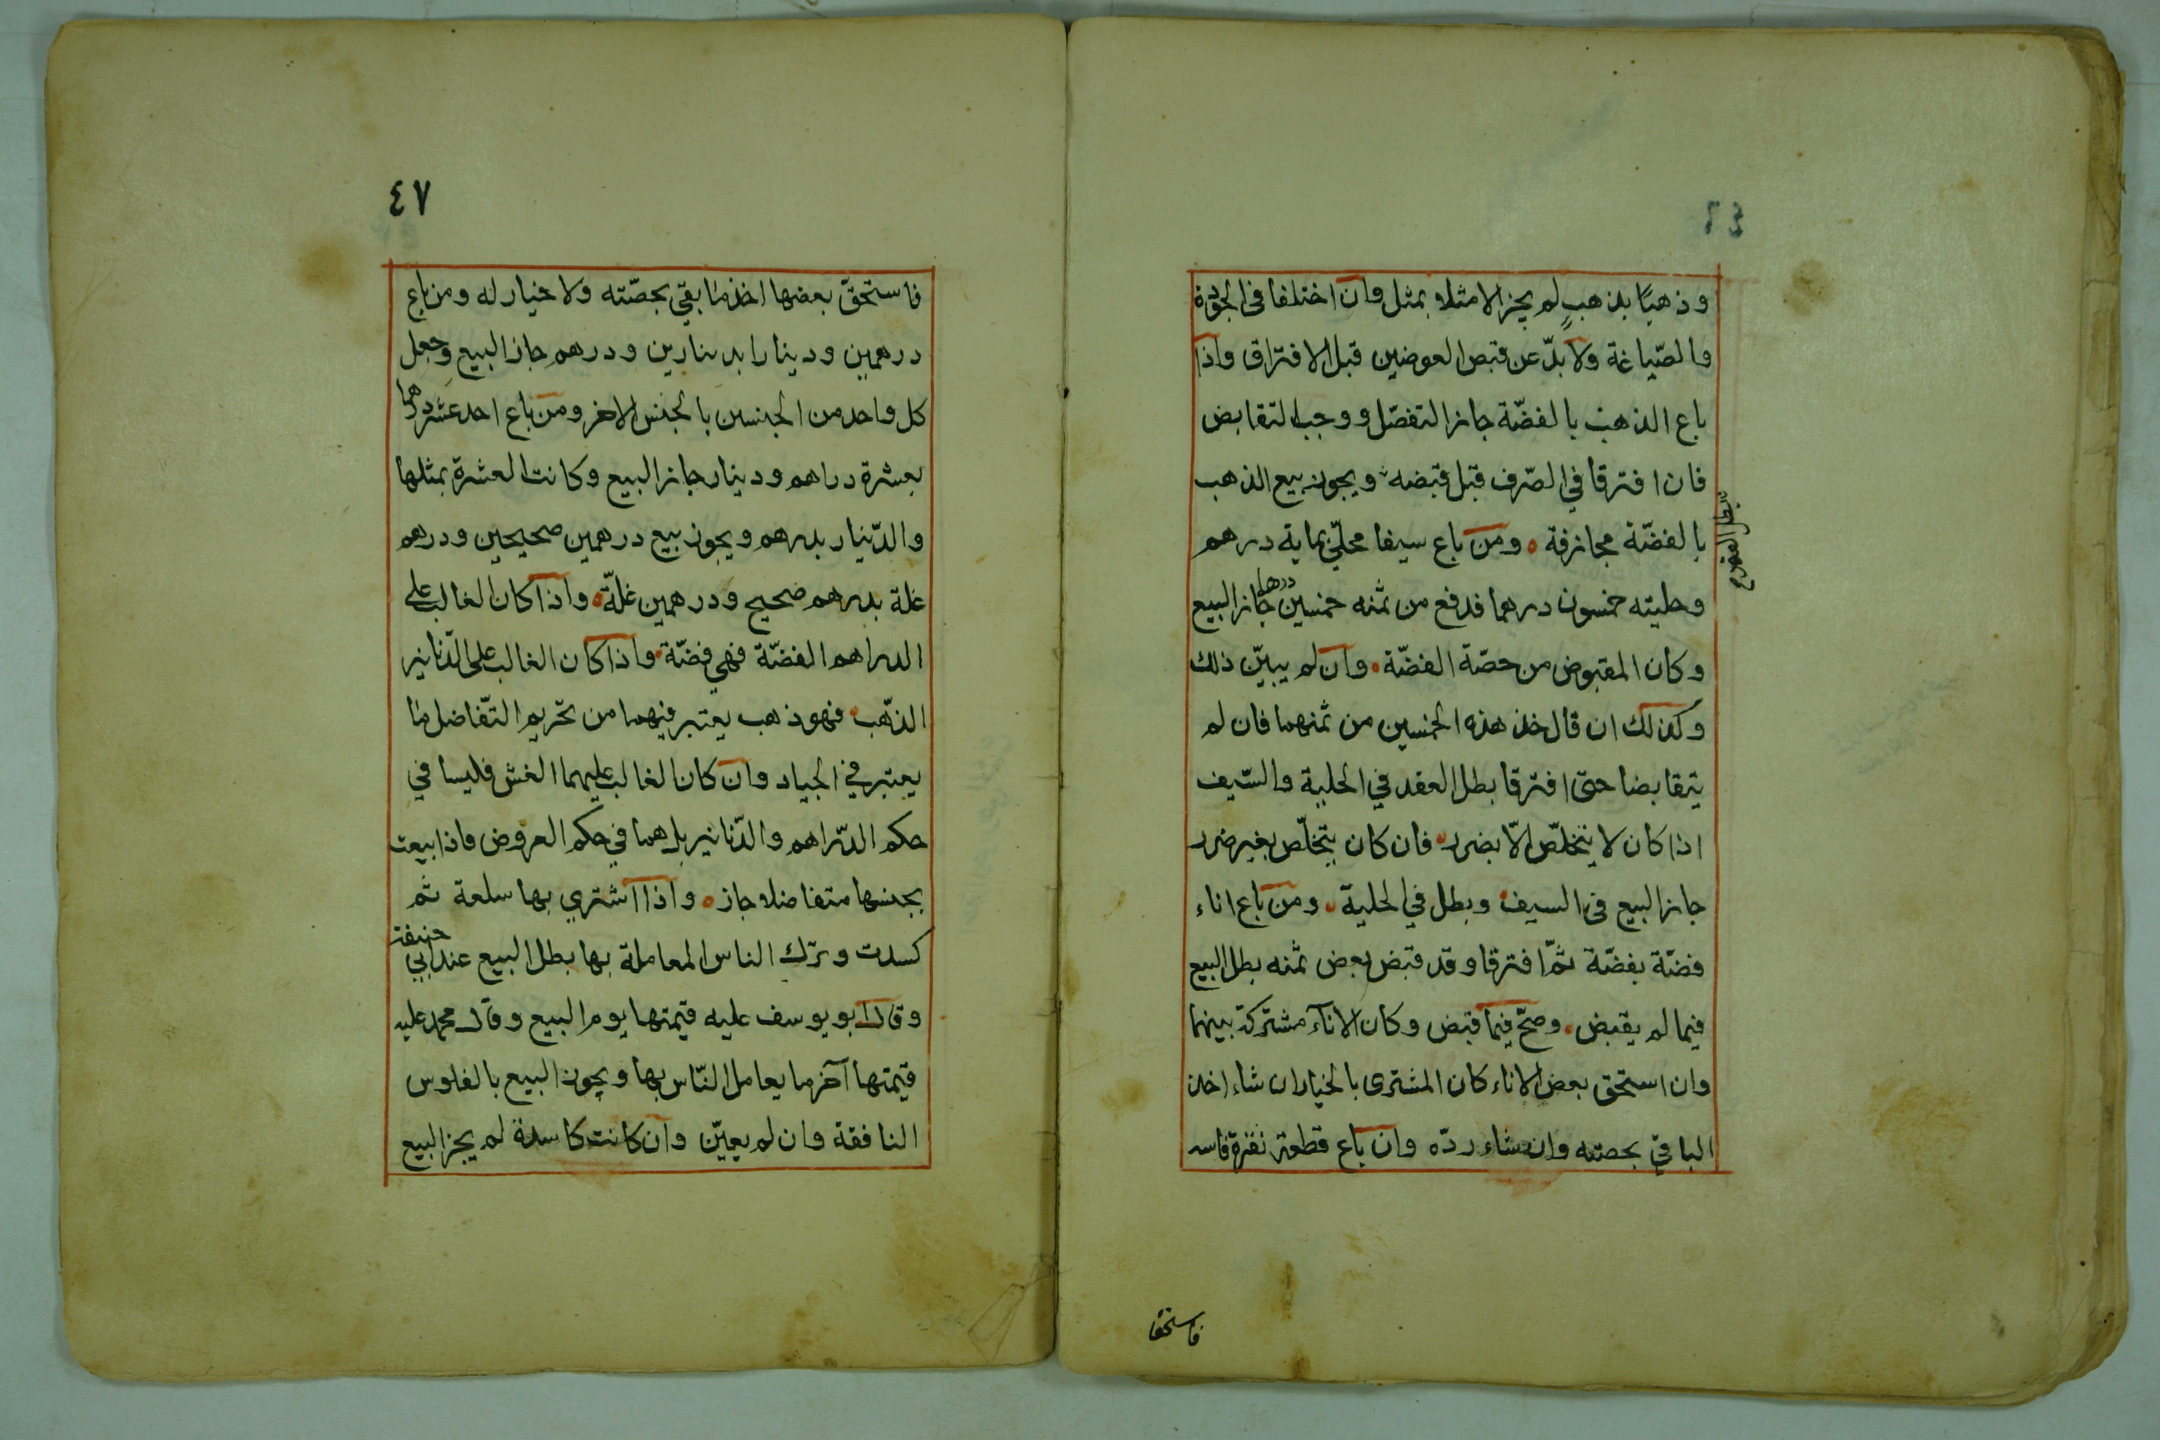 وذهبًا بذهبٍ لم يجز الا مثلا بمثل وان اختلفا في الجودة
والصّياغة ولا بدّ عن قبض العوضين قبل الافتراق واذا
باع الذهب بالفضّة جاز التفضّل ووجب التقابض
فان افترقا في الصّرف قبل قبضه ويجوز بيع الذهب
بطل العقد
بالفضّة مجازفة ومن باع سيفا محلّى بماية درهم
وحليته خمسون درهما فدفع من ثمنه خمسين درهما جاز البيع
وكان المقبوض من حصّة الفضّة وان لم يبيّن ذلك
وكذلك ان قال خذ هذه الخمسين من ثمنهما فان لم
يتقابضا حتى افترقا بطل العقد في الحلية والسّيف
اذا كان لا يتخلّص الّا بضرر فان كان يتخلّص بغير ضرر
جاز البيع في السيف وبطل في الحلية ومن باع اناء
فضّة بفضّة ثمّ افترقا وقد قبض بعض ثمنه بطل البيع
فيما لم يقبض وصحّ فيما قبض وكان الانآء مشتركة بينهما
وان استحق بعض الاناء كان المشترى بالخيار ان شاء اخذ
الباقي بحصته وان شاء ردّه وان باع قطعة نقرة فاسـ
فاستحق
٤٧
فاستحقّ بعضها اخذ ما بقي بحصّته ولا خيار له ومن باع
درهمين ودينارا بدينارين ودرهم جاز البيع وجعل
كل واحد من الجنسين بالجنس الاخر ومن باع احد عشر درهما
بعشرة دراهم ودينار جاز البيع وكانت العشرة بمثلها
والدّينار بدرهم ويجوز بيع درهمين صحيحين ودرهم
غلة بدرهم صحيح ودرهمين غلّة واذا كان الغالب على
الدراهم الفضّة فهي فضّة واذا كان الغالب على الدّنانير
الذّهب فهو ذهب يعتبر فيهما من تحريم التّفاضل ما
يعتبر في الجياد وان كان الغالب عليهما الغش فليسا في
حكم الدّراهم والدّنانير بل هما في حكم العروض فاذا بيعت
بجنسها متفاضلا جاز واذا اشترى بها سلعة ثم
كسدت وترك الناس المعاملة بها بطل البيع عند ابي حنيفة
وقال ابو يوسف عليه قيمتها يوم البيع وقال محمد عليه
قيمتها آخر ما يعامل النّاس بها ويجوز البيع بالفلوس
النافقة وان لم يعيّن وان كانت كاسدة لم يجز البيع